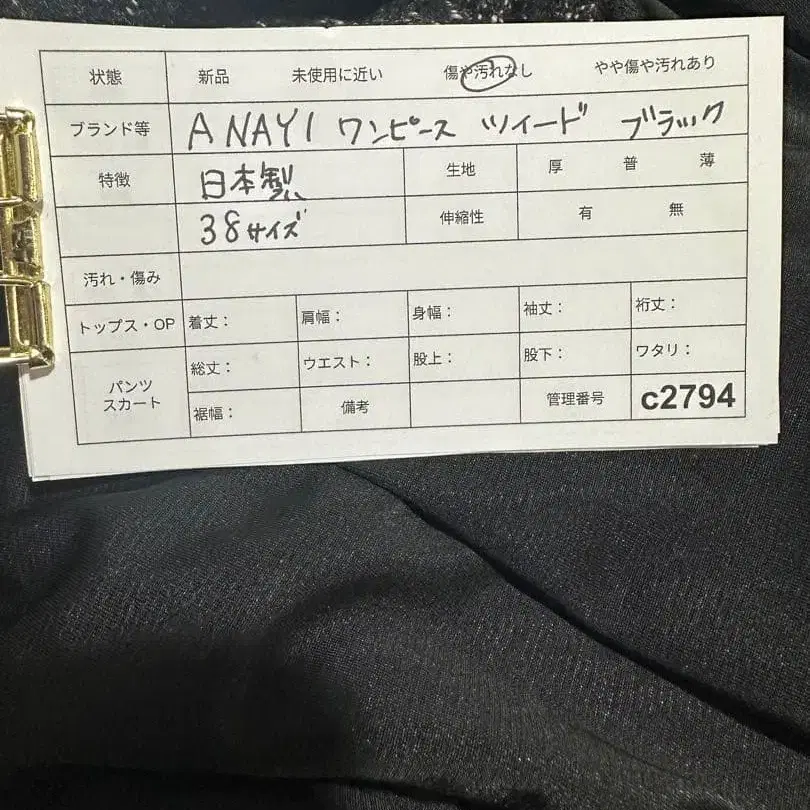 状態 新品 未使用に近い 傷や汚れなし やや傷や汚れあり
ブランド等 ANAYI ワンピース ツイード ブラック
特徴 日本製 生地 厚 普 薄
38サイズ 伸縮性 有 無
汚れ・傷み
トップス・OP 着丈： 肩幅： 身幅： 袖丈： 裄丈：
パンツ スカート 総丈： ウエスト： 股上： 股下： ワタリ：
裾幅： 備考 管理番号 c2794